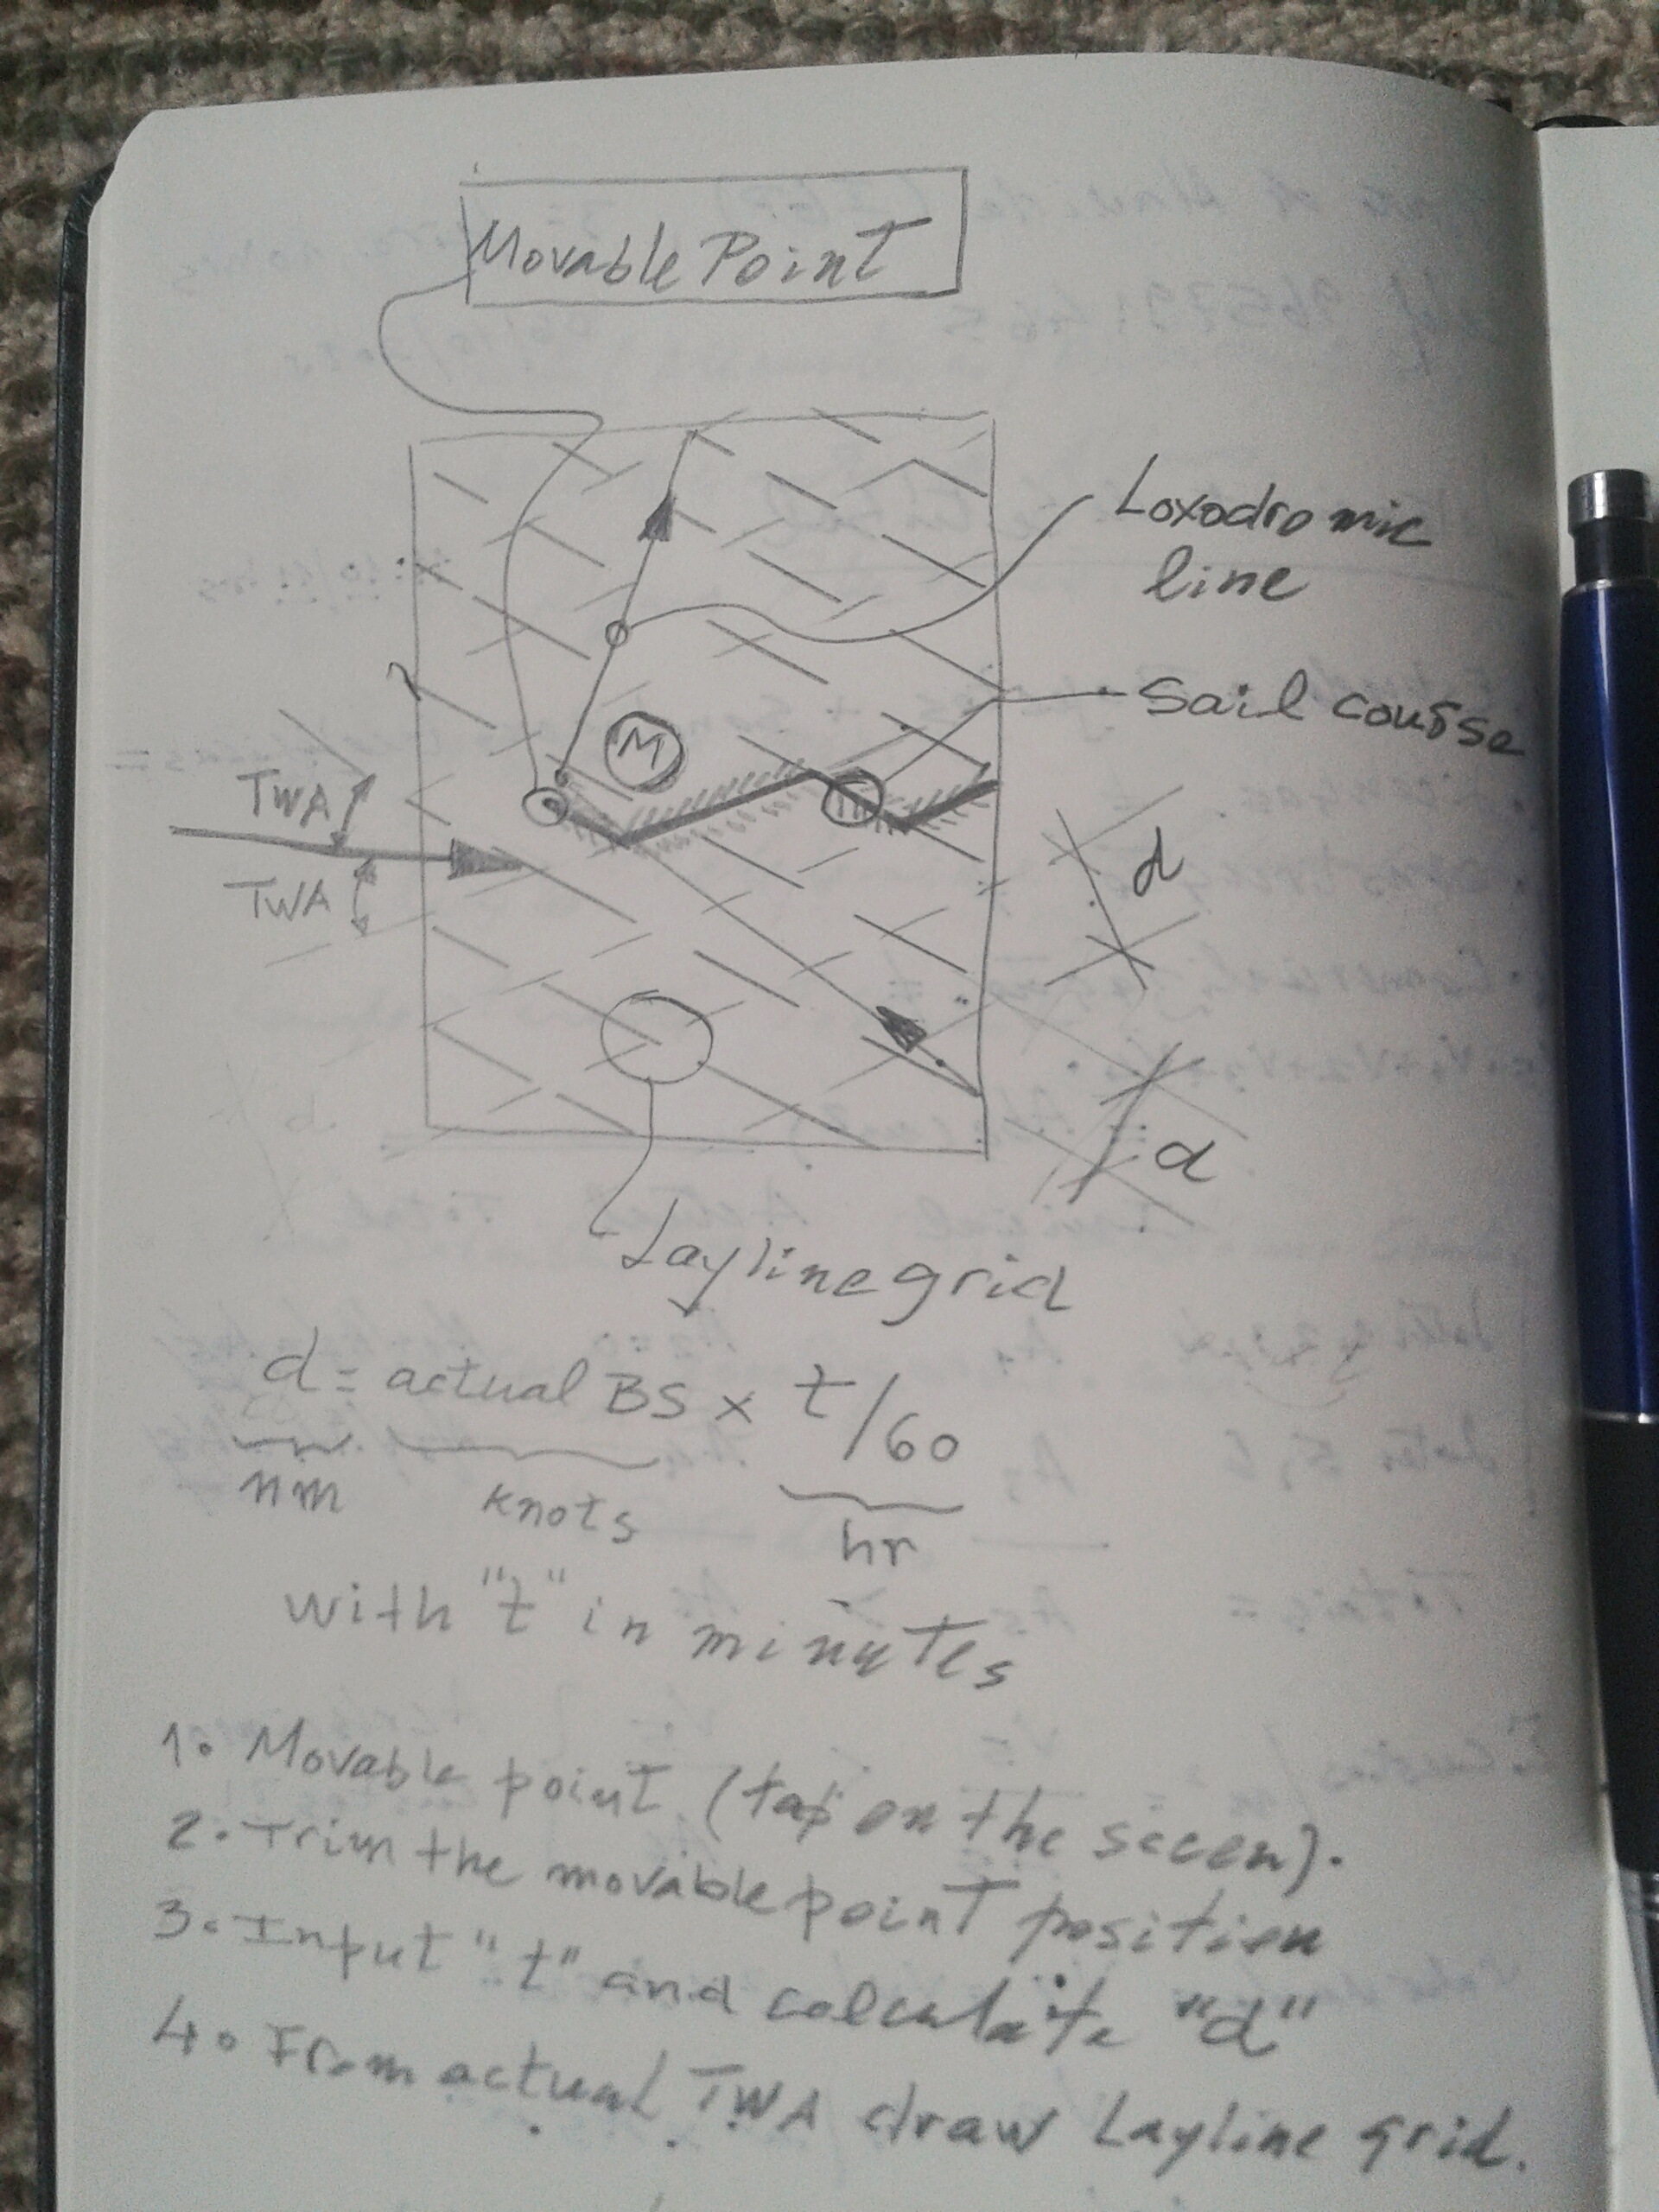 Movable Point
Loxodromic
line
Sail course
M
TWA
TWA
d
d
Layline grid
d = actual BS x t/60
nm knots hr
with "t" in minutes
1. Movable point (tap on the screen).
2. Trim the movable point position
3. Input "t" and calculate "d"
4. From actual TWA draw Layline grid.